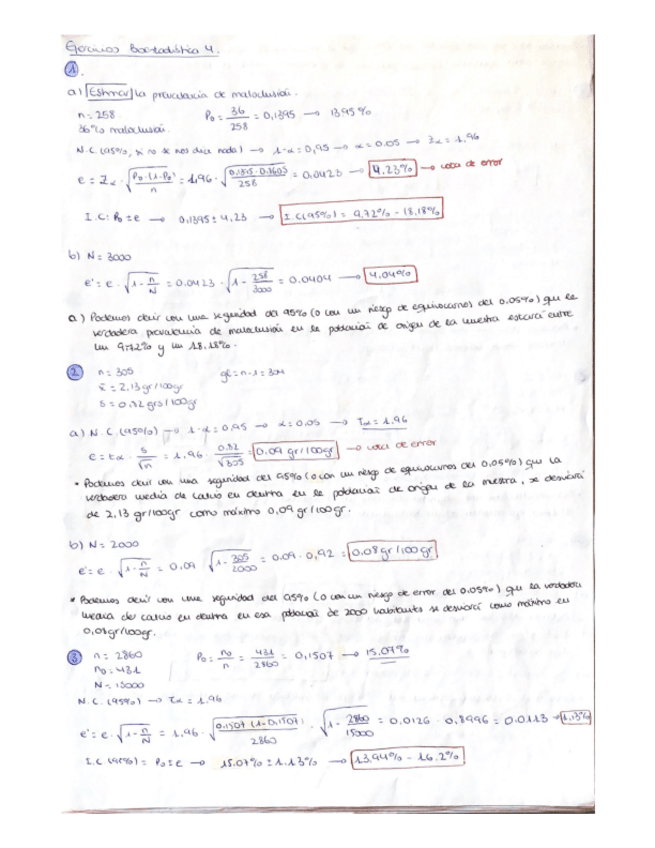 Ejercicios Bioestadística 4.
1.
a) Estimar la prevalencia de maloclusión.
n = 258
36% maloclusión.
P₀ = 36/258 = 0,1395 → 13'95%
N.C. (95%, si no se nos dice nada) → 1-α = 0,95 → α = 0.05 → Zα = 1,96
e = Zα · √(P₀·(1-P₀)/n) = 1,96 · √(0,1395·0,8605/258) = 0,0423 → 4,23% → cota de error
I.C: P₀ ± e → 0,1395 ± 4,23 → I.C(95%) = 9,72% - 18,18%
b) N = 3000
e' = e · √(1 - n/N) = 0,0423 · √(1 - 258/3000) = 0,0404 → 4,04%
a) Podemos decir con una seguridad del 95% (o con un riesgo de equivocarnos del 0.05%) que la
verdadera prevalencia de maloclusión en la población de origen de la muestra estará entre
un 9,72% y un 18,18%.
2 n = 305
x̄ = 2,13 gr/100gr
s = 0,82 grs/100gr
gl = n-1 = 304
a) N.C. (95%) → 1-α = 0,95 → α = 0,05 → tα = 1,96
e = tα · s/√n = 1,96 · 0,82/√305 = 0.09 gr/100gr → cota de error
• Podemos decir con una seguridad del 95% (o con un riesgo de equivocarnos del 0,05%) que la
verdadera media de calcio en dentina en la población de origen de la muestra, se desviará
de 2,13 gr/100gr como máximo 0,09 gr/100gr.
b) N = 2000
e' = e · √(1 - n/N) = 0,09 · √(1 - 305/2000) = 0.09 · 0,92 = 0,08 gr/100gr
* Podemos decir con una seguridad del 95% (o con un riesgo de error del 0.05%) que la verdadera
media de calcio en dentina en esa población de 2000 habitantes se desviará como máximo en
0,08gr/100gr.
3 n = 2860
n₀ = 431
N = 15000
P₀ = n₀/n = 431/2860 = 0,1507 → 15,07%
N.C. (95%) → tα = 1,96
e' = e · √(1 - n/N) = 1,96 · √(0,1507 (1-0,1507)/2860) · √(1 - 2860/15000) = 0,0126 · 0,8996 = 0.0113 → 1,13%
I.C (95%) = P₀ ± e → 15.07% ± 1.13% → 13,94% - 16.2%